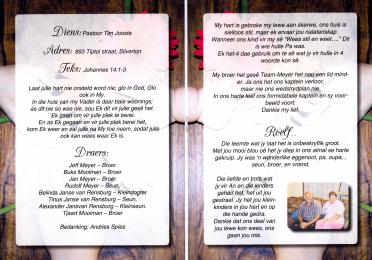 Diens: Pastoor Tim Jooste
Adres: 893 Tiptol straat, Silverton
Teks: Johannes 14:1-3
Laat julle hart nie ontsteld word nie; glo in God, Glo
ook in My.
In die huis van my Vader is daar baie woonings;
as dit nie so was nie, sou Ek dit vir julle gesê het.
Ek gaan om vir julle plek te berei.
En as Ek gegaan en vir julle plek berei het,
kom Ek weer en sal julle na My toe neem, sodat julle
ook kan wees waar Ek is.
Draers:
Jeff Meyer – Broer
Buks Moolman – Broer
Jan Meyer – Broer
Rudolf Meyer – Seun,
Belinda Janse van Rensburg – Kleindogter
Tinus Janse van Rensburg – Seun,
Alexander Jansvan Rensburg – Kleinseun.
Tjaart Moolman – Broer
Bedanking: Andries Spies
My hart is gebroke my lewe aan skerwe, ons huis is
sieloos stil, maar ek ervaar jou nalatenskap.
Wanneer ons kind vir my sê "Wees stil en weet...." Dit
is wie hulle Pa was.
Ek het 4 dae gebruik om te sê wat jy vir hulle in 4
woorde kon sê.
My broer het gesê Team-Meyer het nou een lid mind-
er. Ja ons het ons kaptein verloor,
maar nie ons wedstrydplan nie.
In ons harte leef ons formidabele kaptein en sy voor-
beeld voort.
Dankie my lief.
Roelf..
Die leemte wat jy laat het is onbeskryflik groot.
Met jou mooi blou oë het jy diep in ons almal se harte
gekruip. Jy was 'n wonderlike eggenoot, pa, oupa, ,
seun, broer, en vriend.
Die liefde en trots wat
jy vir An en die kinders
gehad het, het uit jou
gestraal. Jy het jou klein-
kinders in jou hart en op
die hande gedra.
Dankie dat ons deel van
jou lewe kon wees, ons
gaan jou mis.